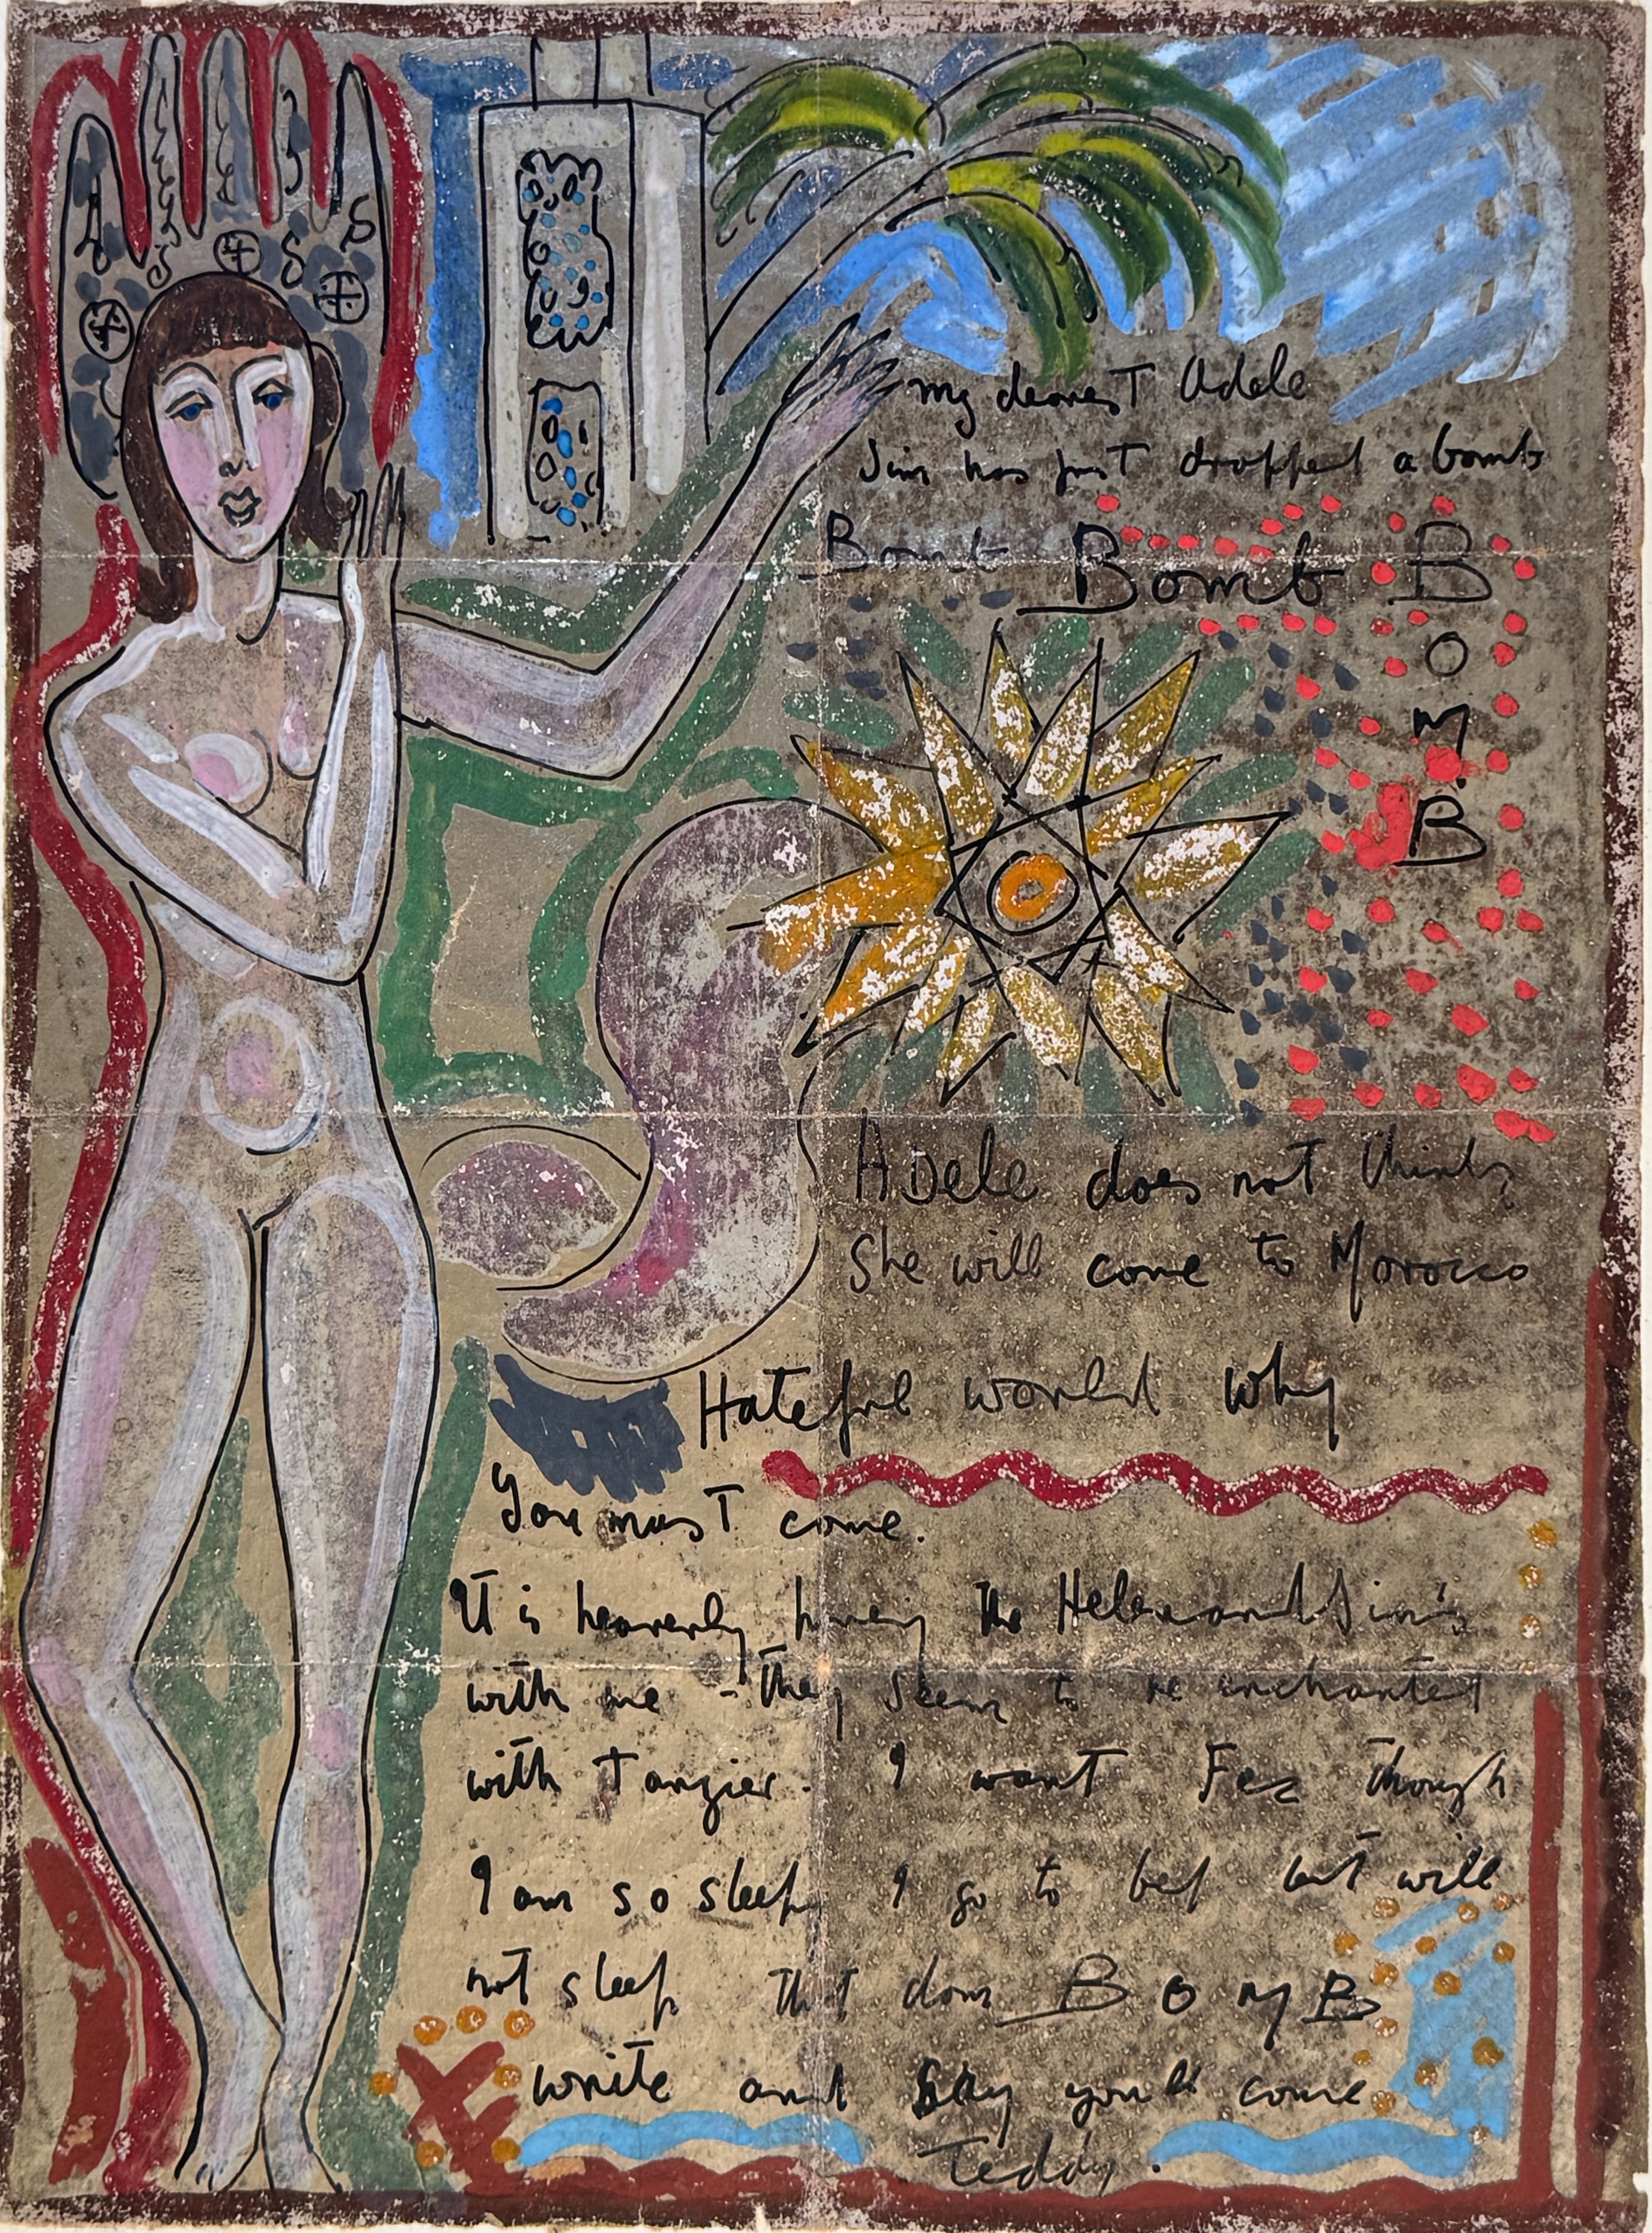 my dearest Adele
Jim has just dropped a bomb
Bomb Bomb BOMB
Adele does not think
She will come to Morocco
Hateful world why
You must come.
It is heavenly having the Helen and Jim's
with me - they seem to be enchanted
with Tangier. I want Fez though
I am so sleepy I go to bed but will
not sleep that damn BOMB
write and say you'll come
Teddy.